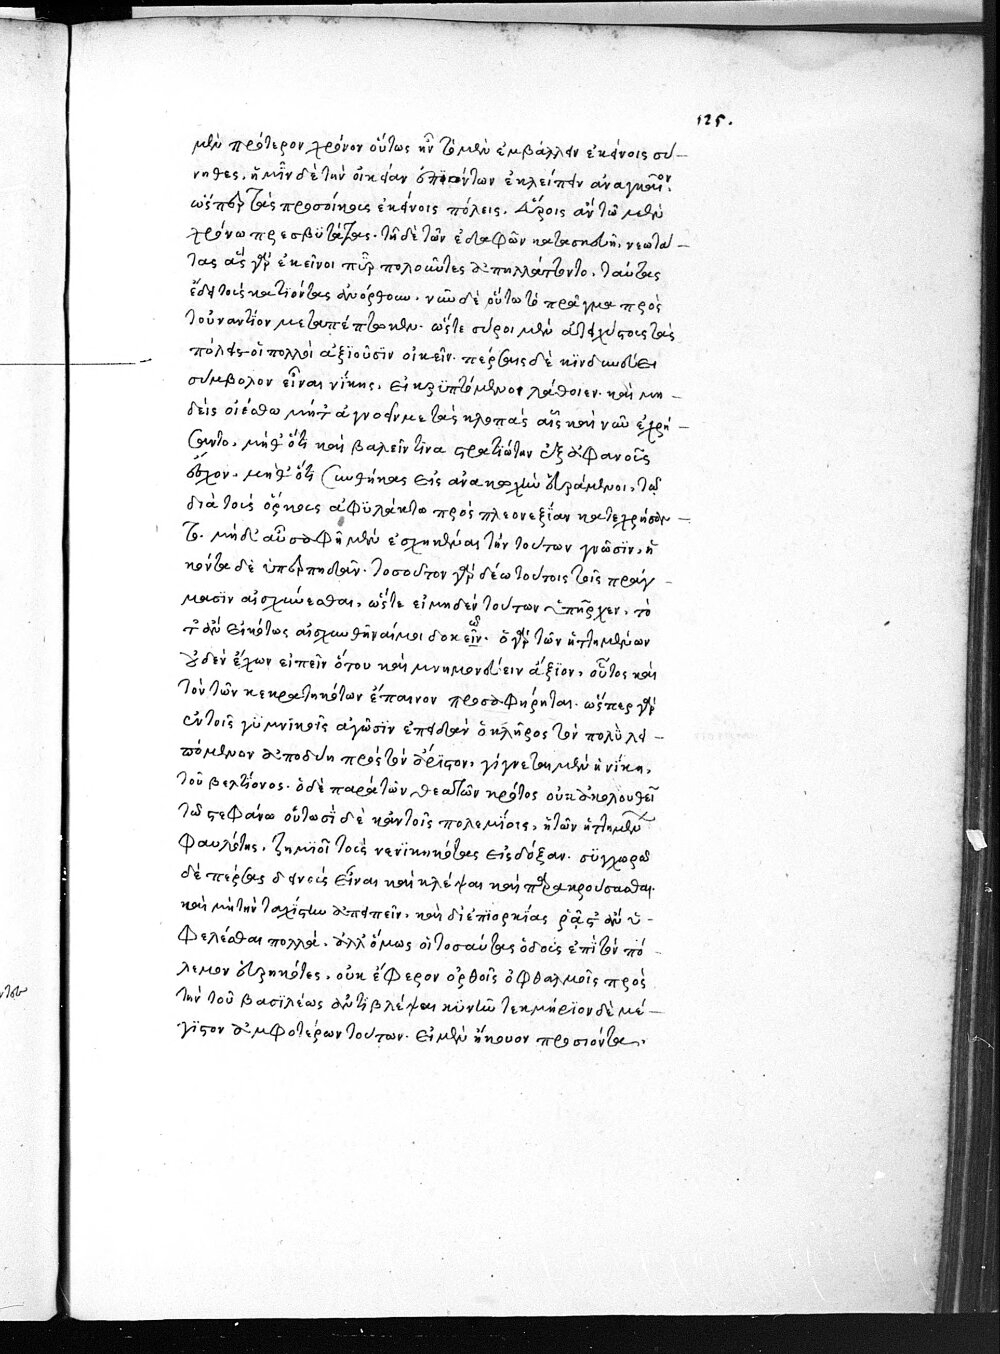 125.
μὲν πρότερον χρόνον οὕτως ἦν τὸ μὲν ἐμβάλλειν ἐκείνοις συ-
νηθες, ἡμῖν δὲ τὴν οἰκείαν ἐπιόντων ἐκλείπειν ἀναγκαῖον.
ὥσπερ τὰς προσοίκους ἐκείνοις πόλεις. Σύροις αὖ τῶ μὲν
χρόνω πρεσβϋτάτας. τῆ δὲ τῶν ἐδαφῶν κατασκευῆ, νεωτά-
τας ἃς γὰρ ἐκεῖνοι πῦρ πολοῦντες ἀπηλλάττοντο, ταύτας
ἔδει τοὺς κατϊόντας ἀνορθοῦν. νῦν δὲ οὕτω τὸ πρᾶγμα πρὸς
τοὐναντίον μεταπέπτωκεν. ὥστε σύροι μὲν ἀτειχίστοις τὰς
πόλεις οἱ πολλοὶ ἀξιοῦσϊν οἰκεῖν. πέρσαις δὲ κϊνδυνεύει
σύμβολον εἶναι νίκης, εἰ κρϋπτόμενοι λάθοιεν. καὶ μη-
δεὶς οἰέσθω μήτ ἀγνοεῖν με τὰς κλοπάς αἷς καὶ νῦν ἐχρή-
σαντο, μήθ ὅτι καὶ βαλεῖν τϊνα στρατϊώτην ἐξ ἀφανοῦς
ἔσχον. μήθ ὅτι συνθήκας εἰς ἀνακωχὴν εὑράμενοι, τῶ
διὰ τοὺς ὅρκους ἀφϋλάκτω πρὸς πλεονεξίαν κατεχρήσαν-
το. μήδ αὖ σοφῆ μὲν ἐσχηκέναι τὴν τούτων γνῶσϊν, ἥ
κοντα δὲ ὑπερπηδᾶν. τοσοῦτον γὰρ δέω τούτοις τοῖς πράγ-
μασϊν αἰσχύνεσθαι, ὥστε εἰ μηδὲν τούτων ὑπῆρχεν, τό
τ ἂν εἰκότως αἰσχυνθῆναί μοι δοκεῖν. ὁ γὰρ τῶν ἡττημένων
οὐδὲν ἔχων εἰπεῖν ὅτου καὶ μνημονεύειν ἄξϊον, οὗτος καὶ
τὸν τῶν κεκρατηκότων ἔπαινον προσαφήρηται. ὥσπερ γὰρ
ἐν τοῖς γϋμνϊκοῖς ἀγῶσϊν ἐπειδὰν ὁ κλῆρος τὸν πολὺ λει-
πόμενον ἀποδύη πρὸς τὸν ἄρϊστον, γίγνεται μὲν ἡ νίκη,
τοῦ βελτίονος. ὁ δὲ παρὰ τῶν θεατῶν κρότος οὐκ ἀκολουθεῖ
τῶ στεφάνω οὕτωσὶ δὲ κἀν τοῖς πολεμίοις, ἡ τῶν ἡττημένων
φαυλότης, ζημϊοῖ τοὺς νενϊκηκότας εἰς δόξαν. σϋγχωρῶ
δὲ πέρσας δεινοὺς εἶναι καὶ κλέψαι καὶ παρακρούσασθαι.
καὶ μὴ τὴν ταχίστην ἀπειπεῖν, καὶ δι ἐπϊορκίας ῥᾷστ ἂν ὑ-
φελέσθαι πολλά. ἀλλ ὅμως οἱ τοσαύτας ὁδοὺς ἐπὶ τὸν πό-
λεμον εὑρηκότες, οὐκ ἔφερον ὀρθοῖς ὀφθαλμοῖς πρὸς
τὴν τοῦ βασϊλέως ἀντϊβλέψαι κϋνῆν τεκμήρϊον δὲ μέ-
γϊστον ἀμφοτέρων τούτων. εἰ μὲν ἤκουον προσιόντα,